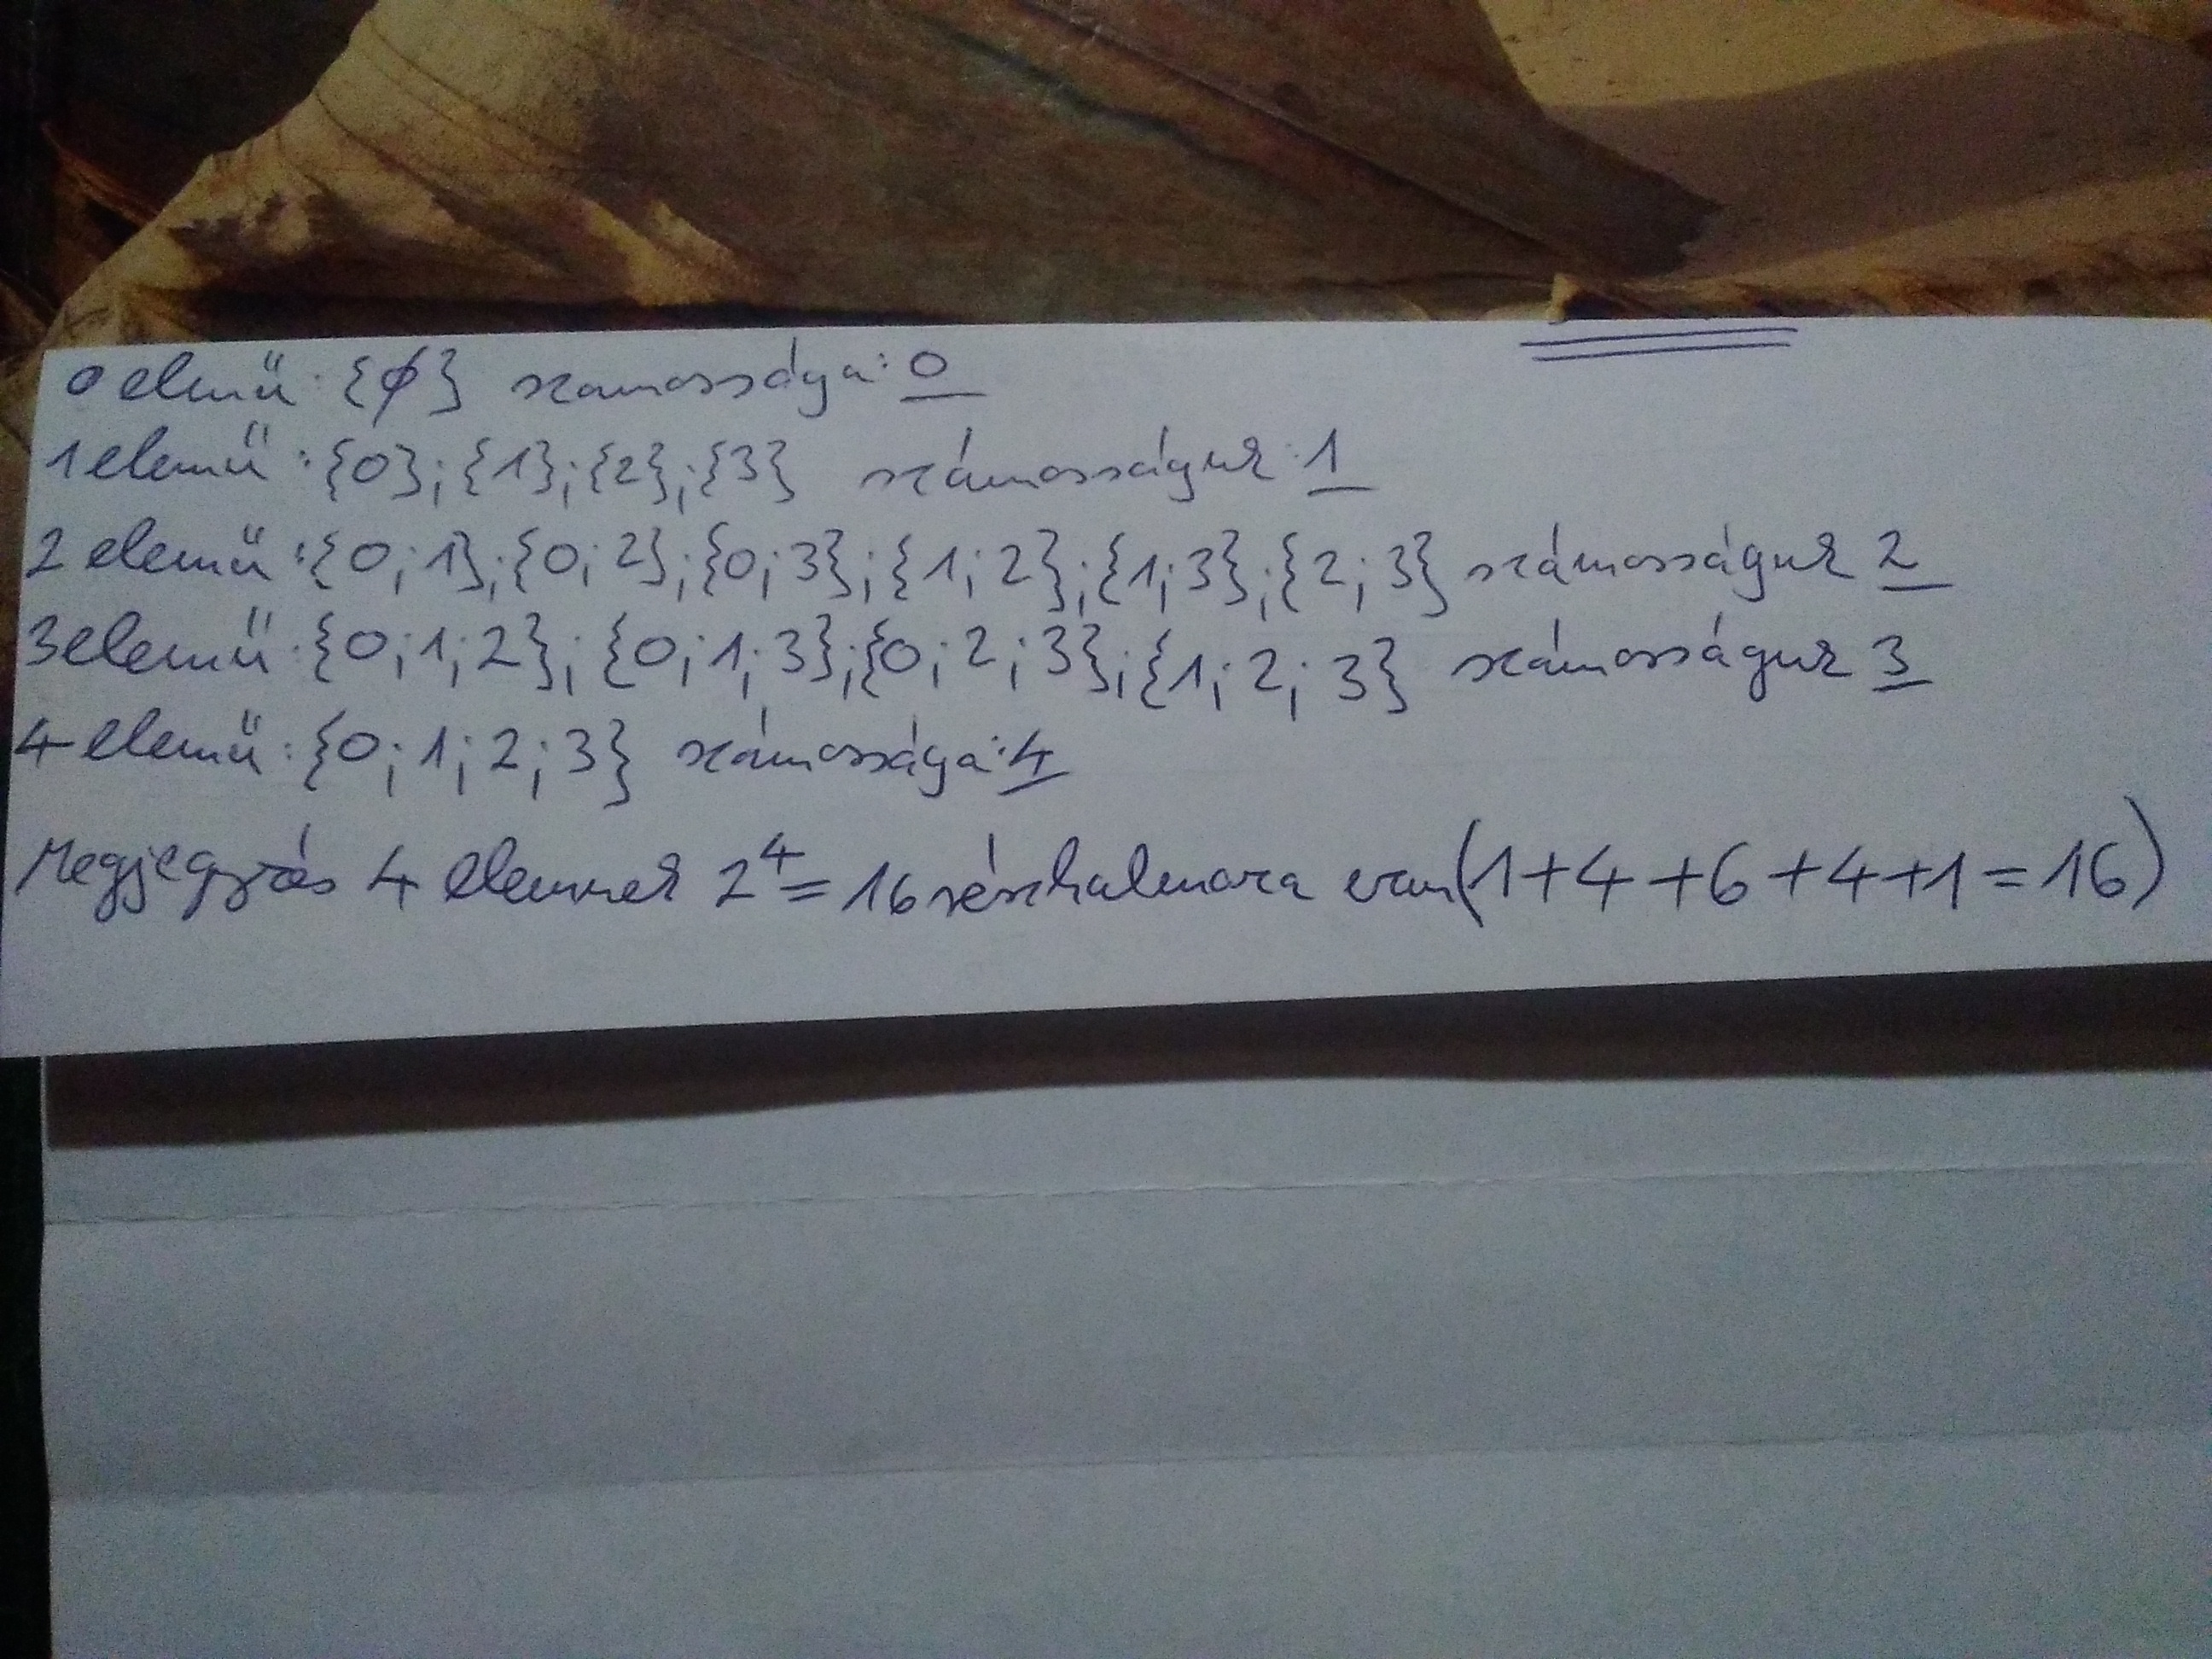 0 elemű: {∅} számossága: 0
1 elemű: {0}; {1}; {2}; {3} számosságuk: 1
2 elemű: {0; 1}; {0; 2}; {0; 3}; {1; 2}; {1; 3}; {2; 3} számosságuk 2
3 elemű: {0; 1; 2}; {0; 1; 3}; {0; 2; 3}; {1; 2; 3} számosságuk 3
4 elemű: {0; 1; 2; 3} számossága: 4
Megjegyzés 4 elemnek 2⁴= 16 részhalmaza van (1+4+6+4+1=16)